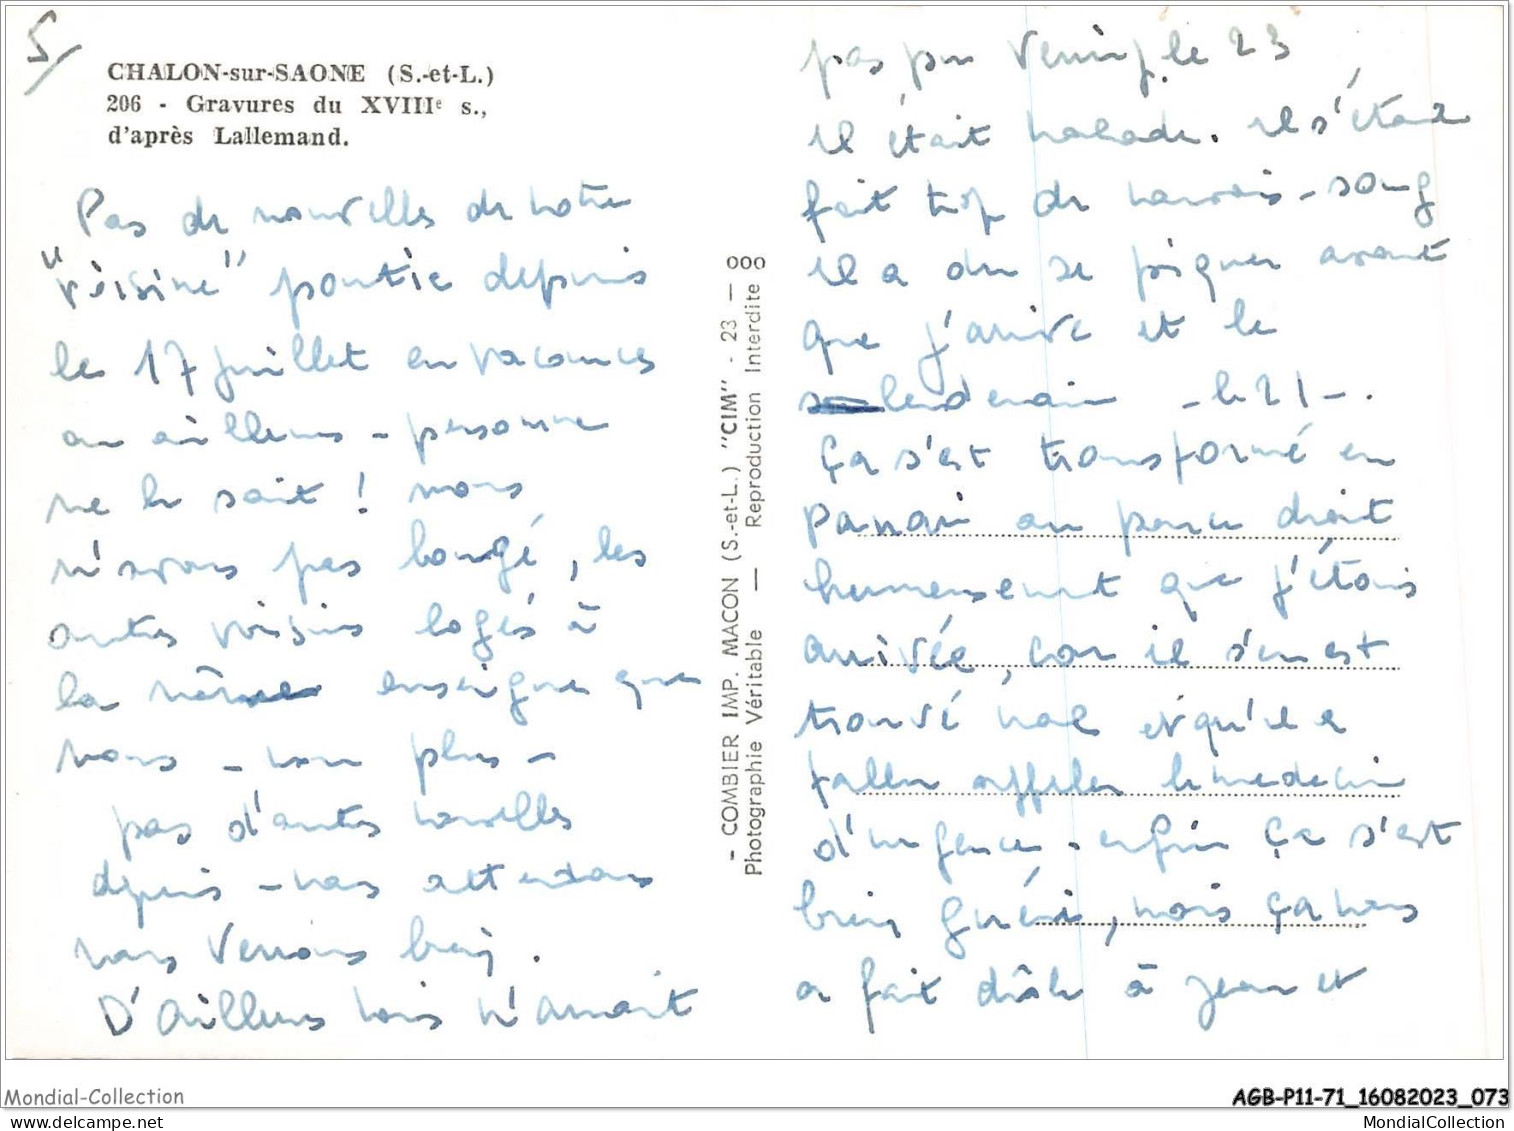 5/
CHALON-sur-SAONE (S.-et-L.)
206 - Gravures du XVIIIe s.,
d'après Lallemand.
Pas de nouvelles de notre
"voisine" partie depuis
le 17 juillet en vacances
ou ailleurs - personne
ne le sait ! nous
n'avons pas bougé, les
autres voisins logés à
la même enseigne que
nous - non plus -
pas d'autres nouvelles
depuis - nous attendons
nous verrons bien.
D'ailleurs n'aurait
pas pu venir, le 23
il était malade. il s'était
fait trop de mauvais-sang
il a du se piquer avant
que j'arrive et le
lendemain - le 21 -.
Ça s'est transformé en
panari au pouce droit
heureusement que j'étais
arrivée, car il s'en est
trouvé mal et qu'il a
fallu appeler le medecin
d'urgence. enfin ça s'est
bien guéri, mais ça nous
a fait drôle à Jean et
- COMBIER IMP. MACON (S.-et-L.) "CIM" - 23 — 000
Photographie Véritable — Reproduction Interdite
Mondial-Collection
AGB-P11-71_16082023_073
www.delcampe.net
MondialCollection